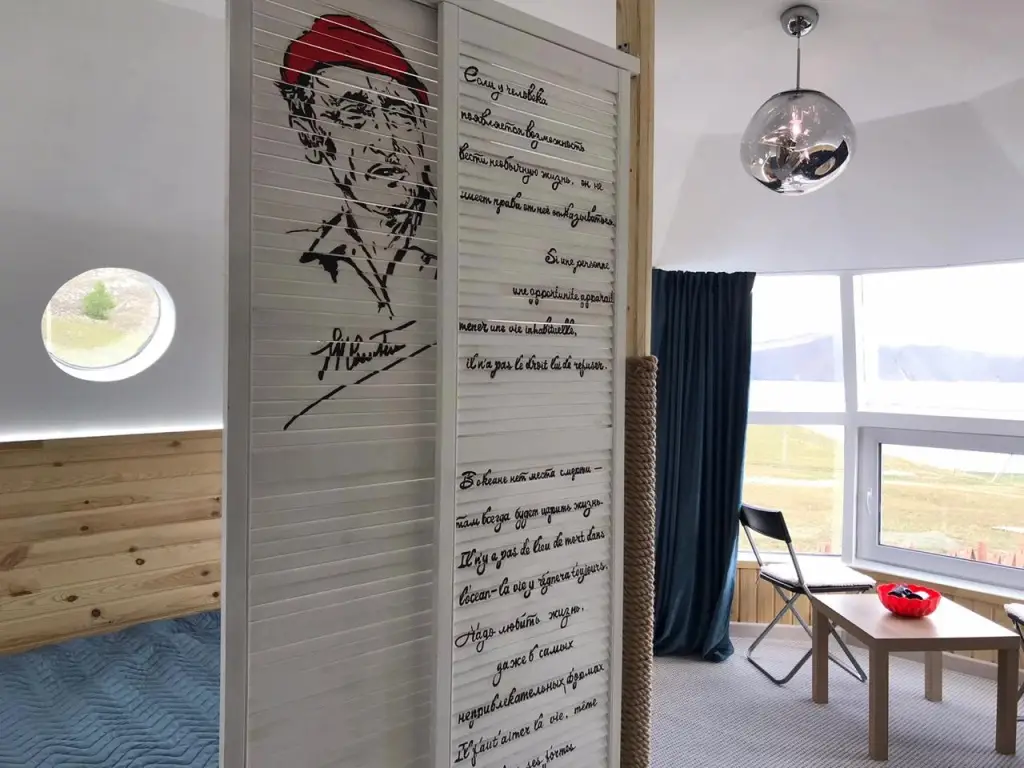 Если у человека
появляется возможность
вести необычную жизнь, он не
имеет права от неё отказываться
Si une personne
une opportunité apparaît
mener une vie inhabituelle,
il n'a pas le droit lui de refuser.
В океане нет места смерти —
там всегда будет царить жизнь.
Il n'y a pas de lieu de mort dans
l'océan - la vie y régnera toujours.
Надо любить жизнь,
даже в самых
непривлекательных формах
Il faut aimer la vie, même
ses formes